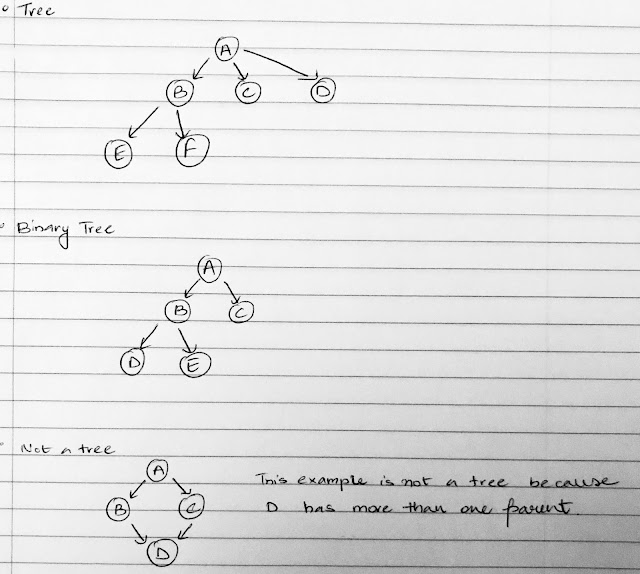 Tree
A
B C D
E F
Binary Tree
A
B C
D E
Not a tree
A
B C
D
This example is not a tree because
D has more than one parent.